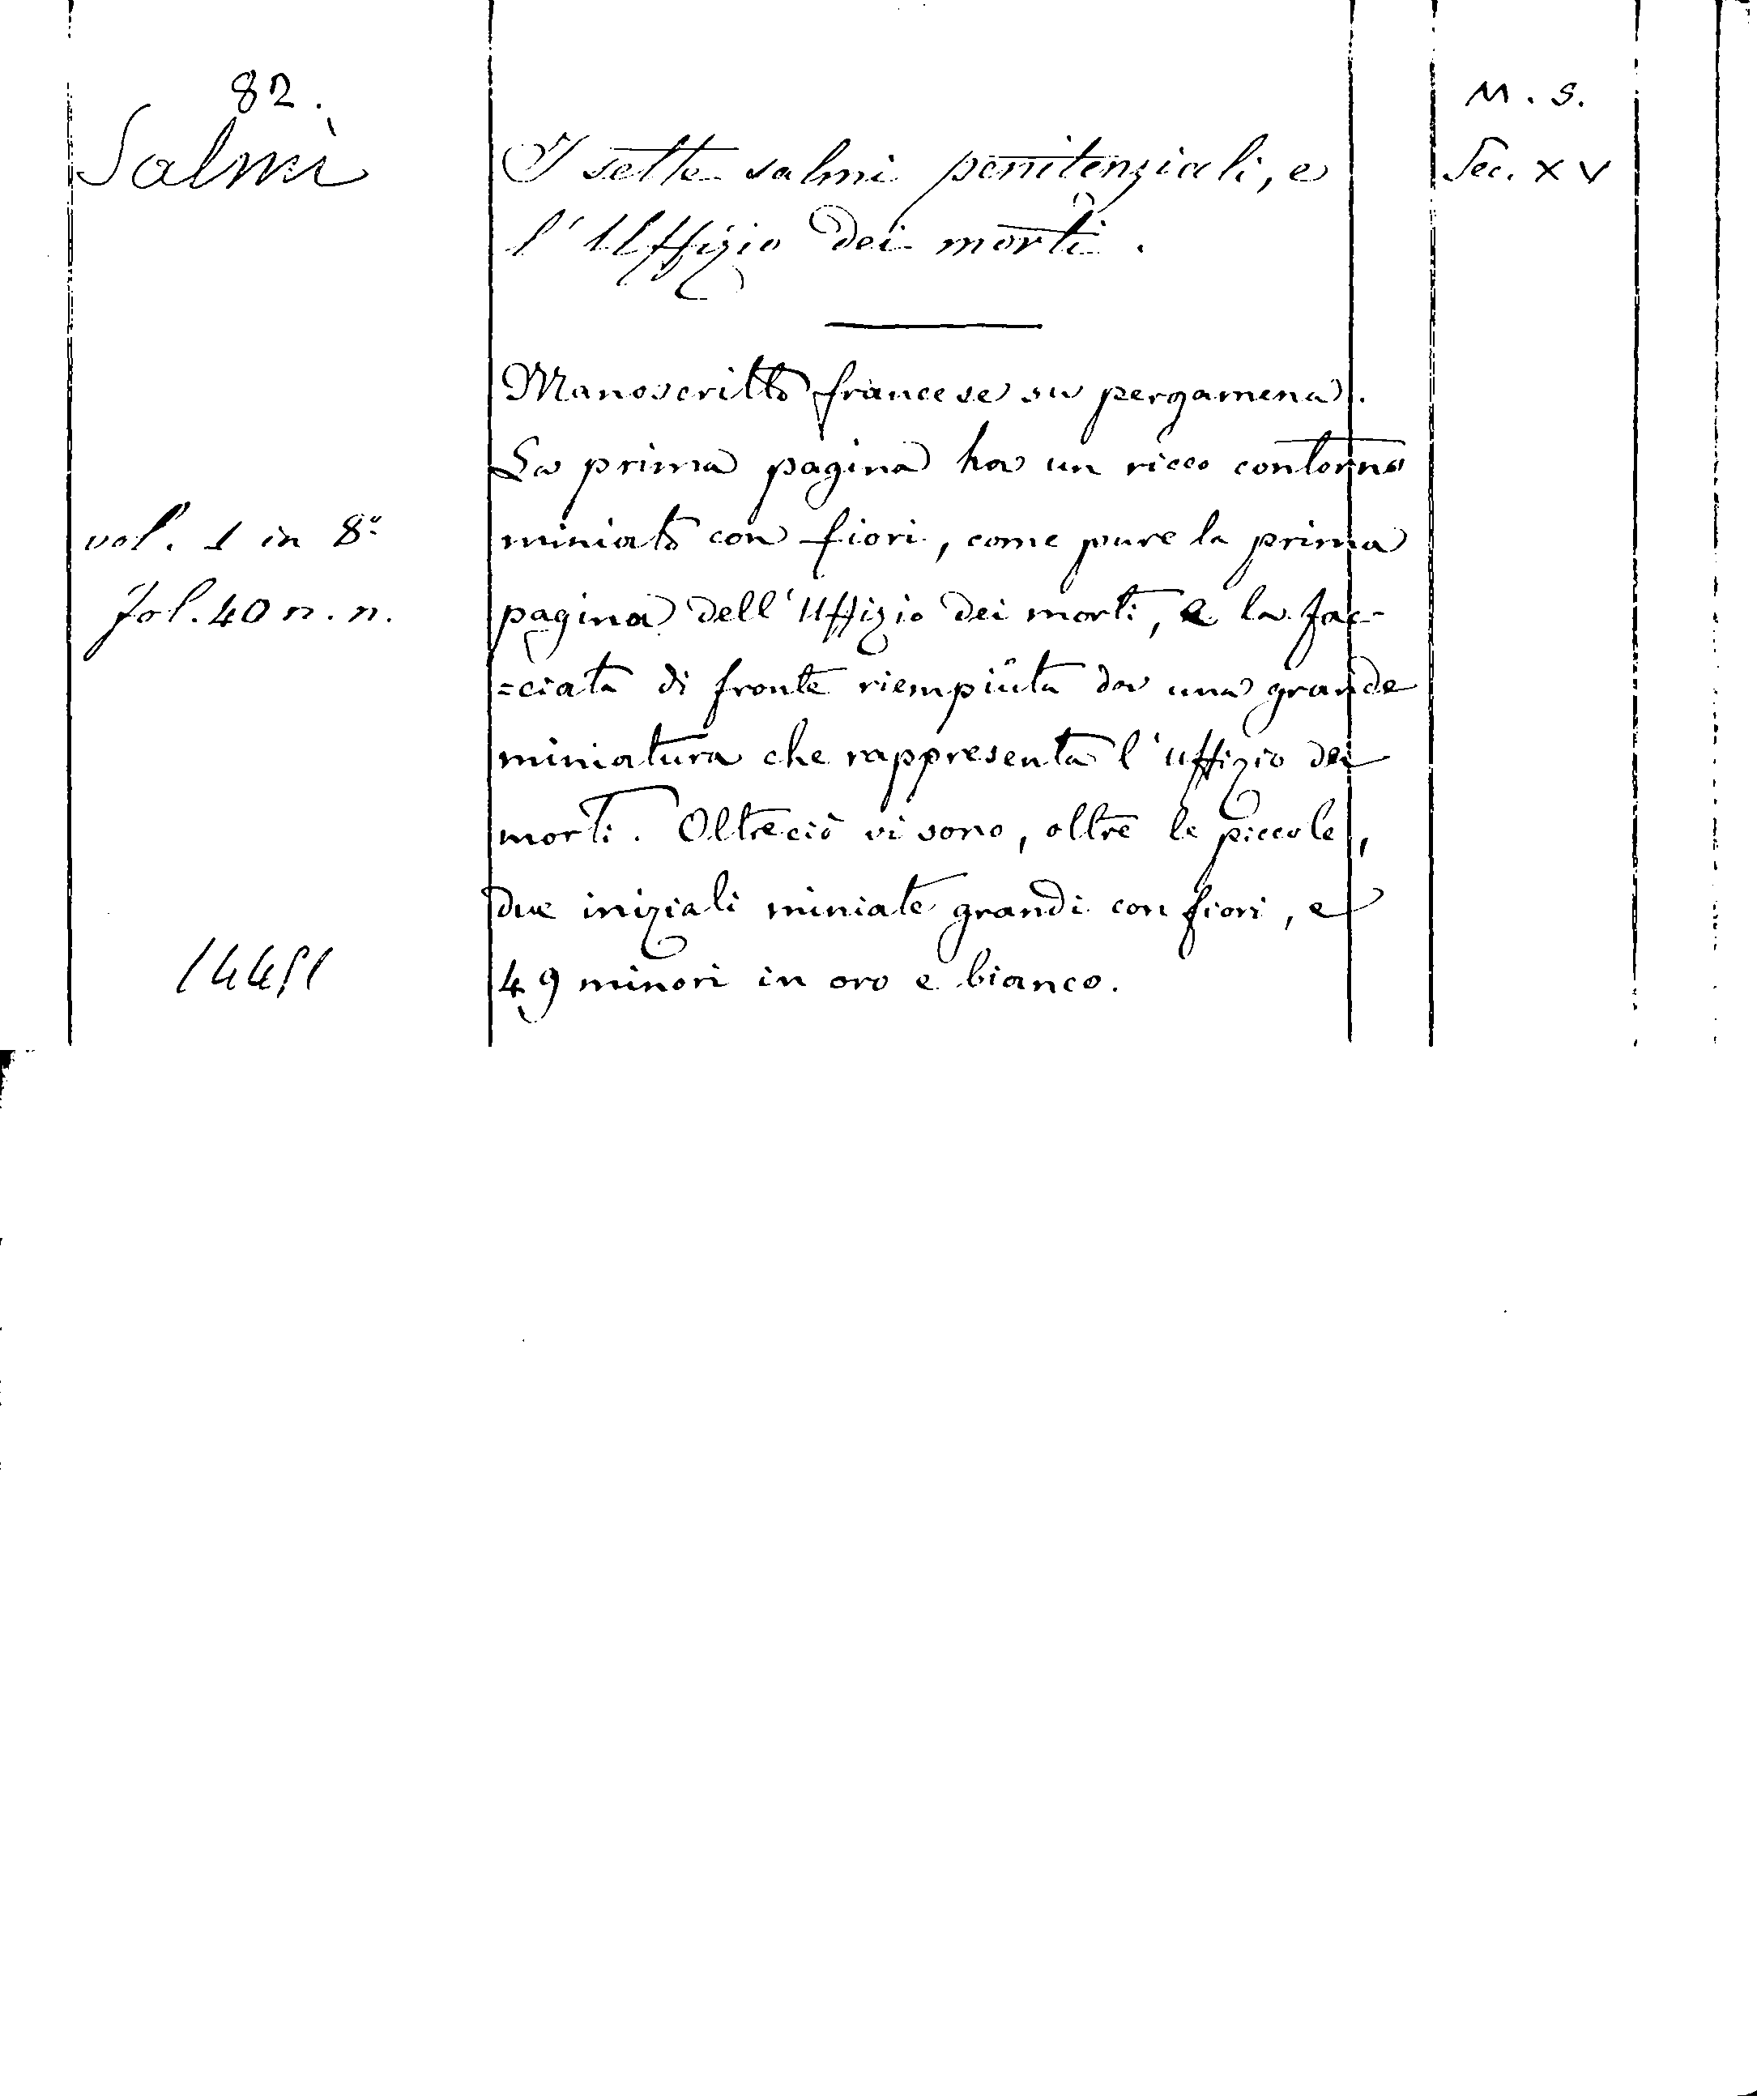 82.
Salmi
I sette salmi penitenziali, e
l'Uffizio dei morti.
M. S.
Sec. XV
Manoscritto francese su pergamena.
La prima pagina ha un ricco contorno
miniato con fiori, come pure la prima
pagina dell'Uffizio dei morti, e la fac-
=ciata di fronte riempiuta da una grande
miniatura che rappresenta l'uffizio dei
morti. Oltreciò vi sono, oltre le piccole,
due iniziali miniate grandi con fiori, e
49 minori in oro e bianco.
vol. 1 in 8º
fol. 40 n. n.